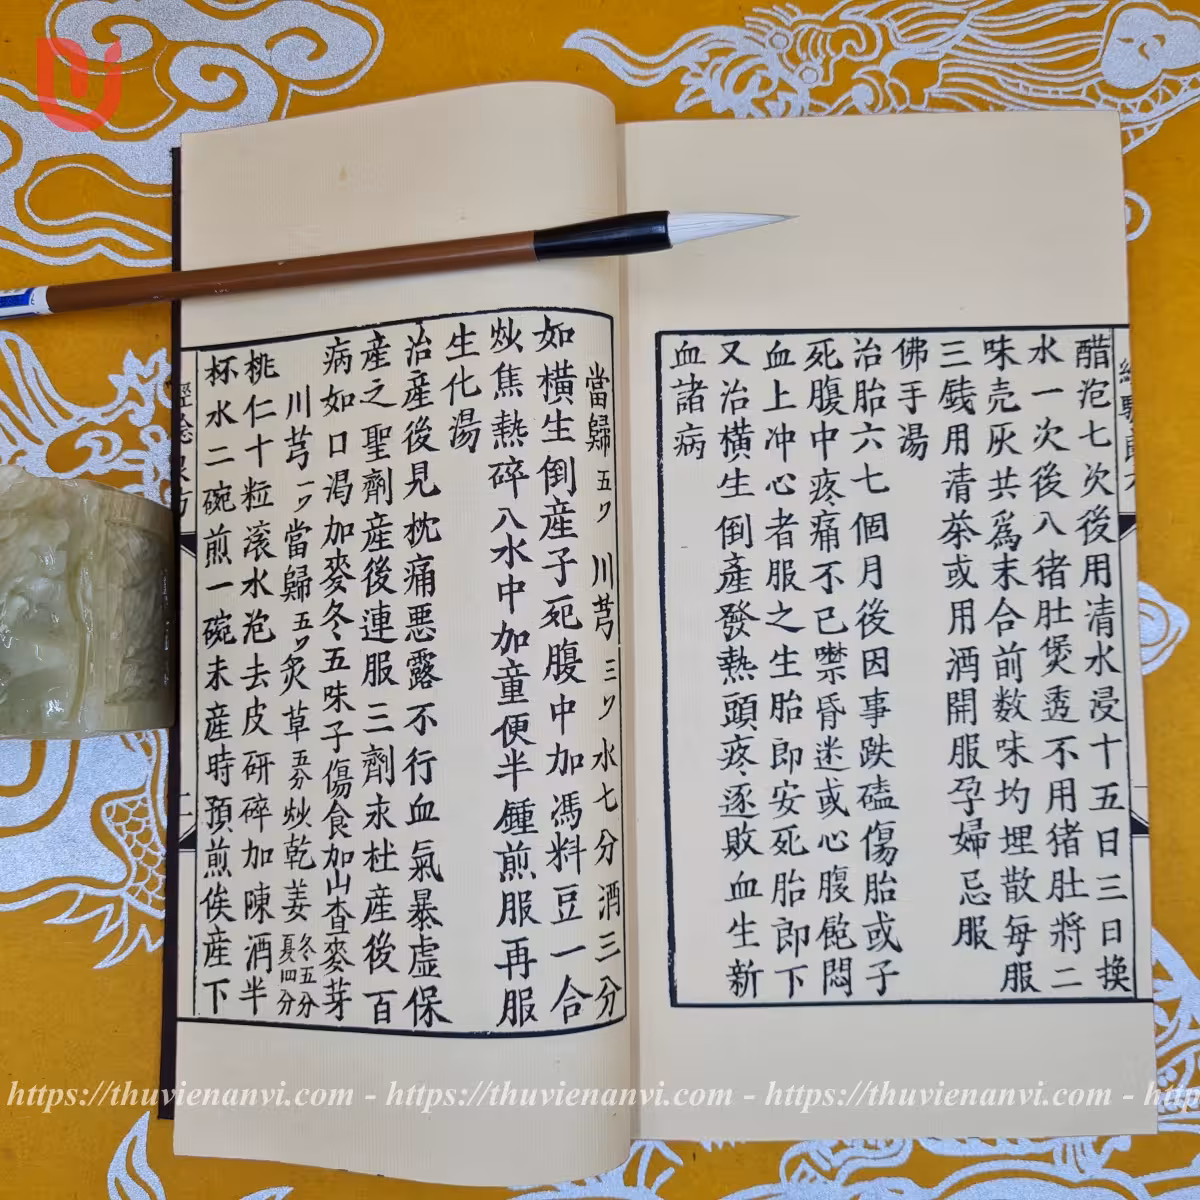 醋泡七次後用清水浸十五日三日換
水一次後八猪肚煲透不用猪肚將二
味壳灰共爲末合前数味均埋散每服
三銭用清茶或用酒開服孕婦忌服
佛手湯
治胎六七個月後因事跌磕傷胎或子
死腹中疼痛不已噤昏迷或心腹飽悶
血上冲心者服之生胎即安死胎即下
又治横生倒產發熱頭疼逐敗血生新
血諸病
當歸五ツ川芎三ツ水七分酒三分
如橫生倒産子死腹中加馮料豆一合
炒焦熱碎八水中加童便半鍾煎服再服
生化湯
治產後見枕痛悪露不行血氣暴虛保
產之聖劑産後連服三劑永杜産後百
病如口渴加麥冬五味子傷食加山查麥芽
川芎一ツ當歸五ツ炙草五分炒乾姜冬五分夏四分
桃仁十粒滚水泡去皮研碎加陳酒半
杯水二碗煎一碗未産時預煎俟産下
https://thuvienanvi.com - https://thuvienanvi.com - https://thuvienanvi.com -